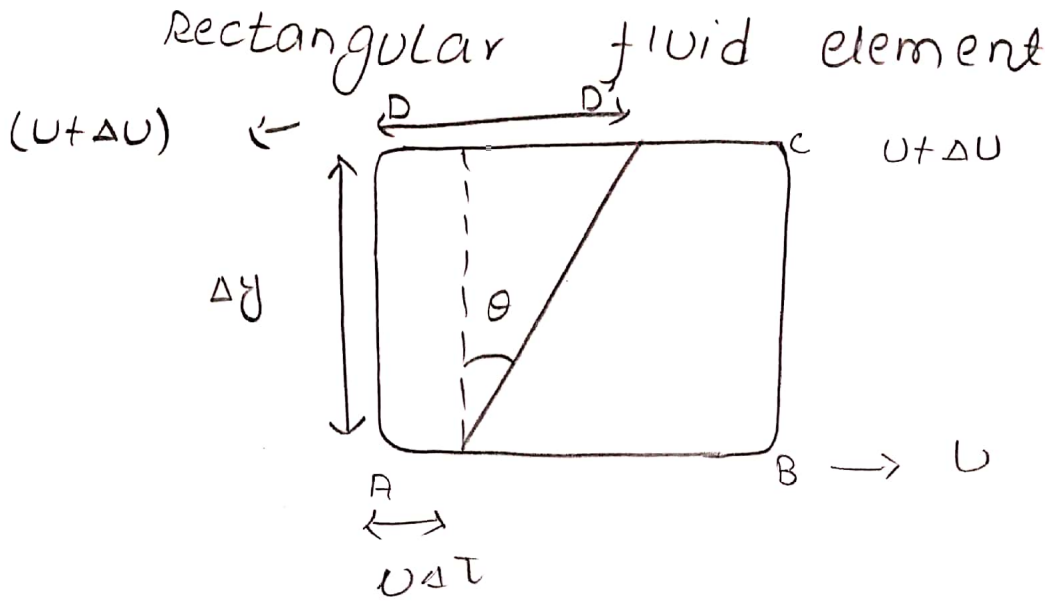 Rectangular fluid element
D D'
(U+ΔU) ← C U+ΔU
Δy θ
A B → U
UΔT